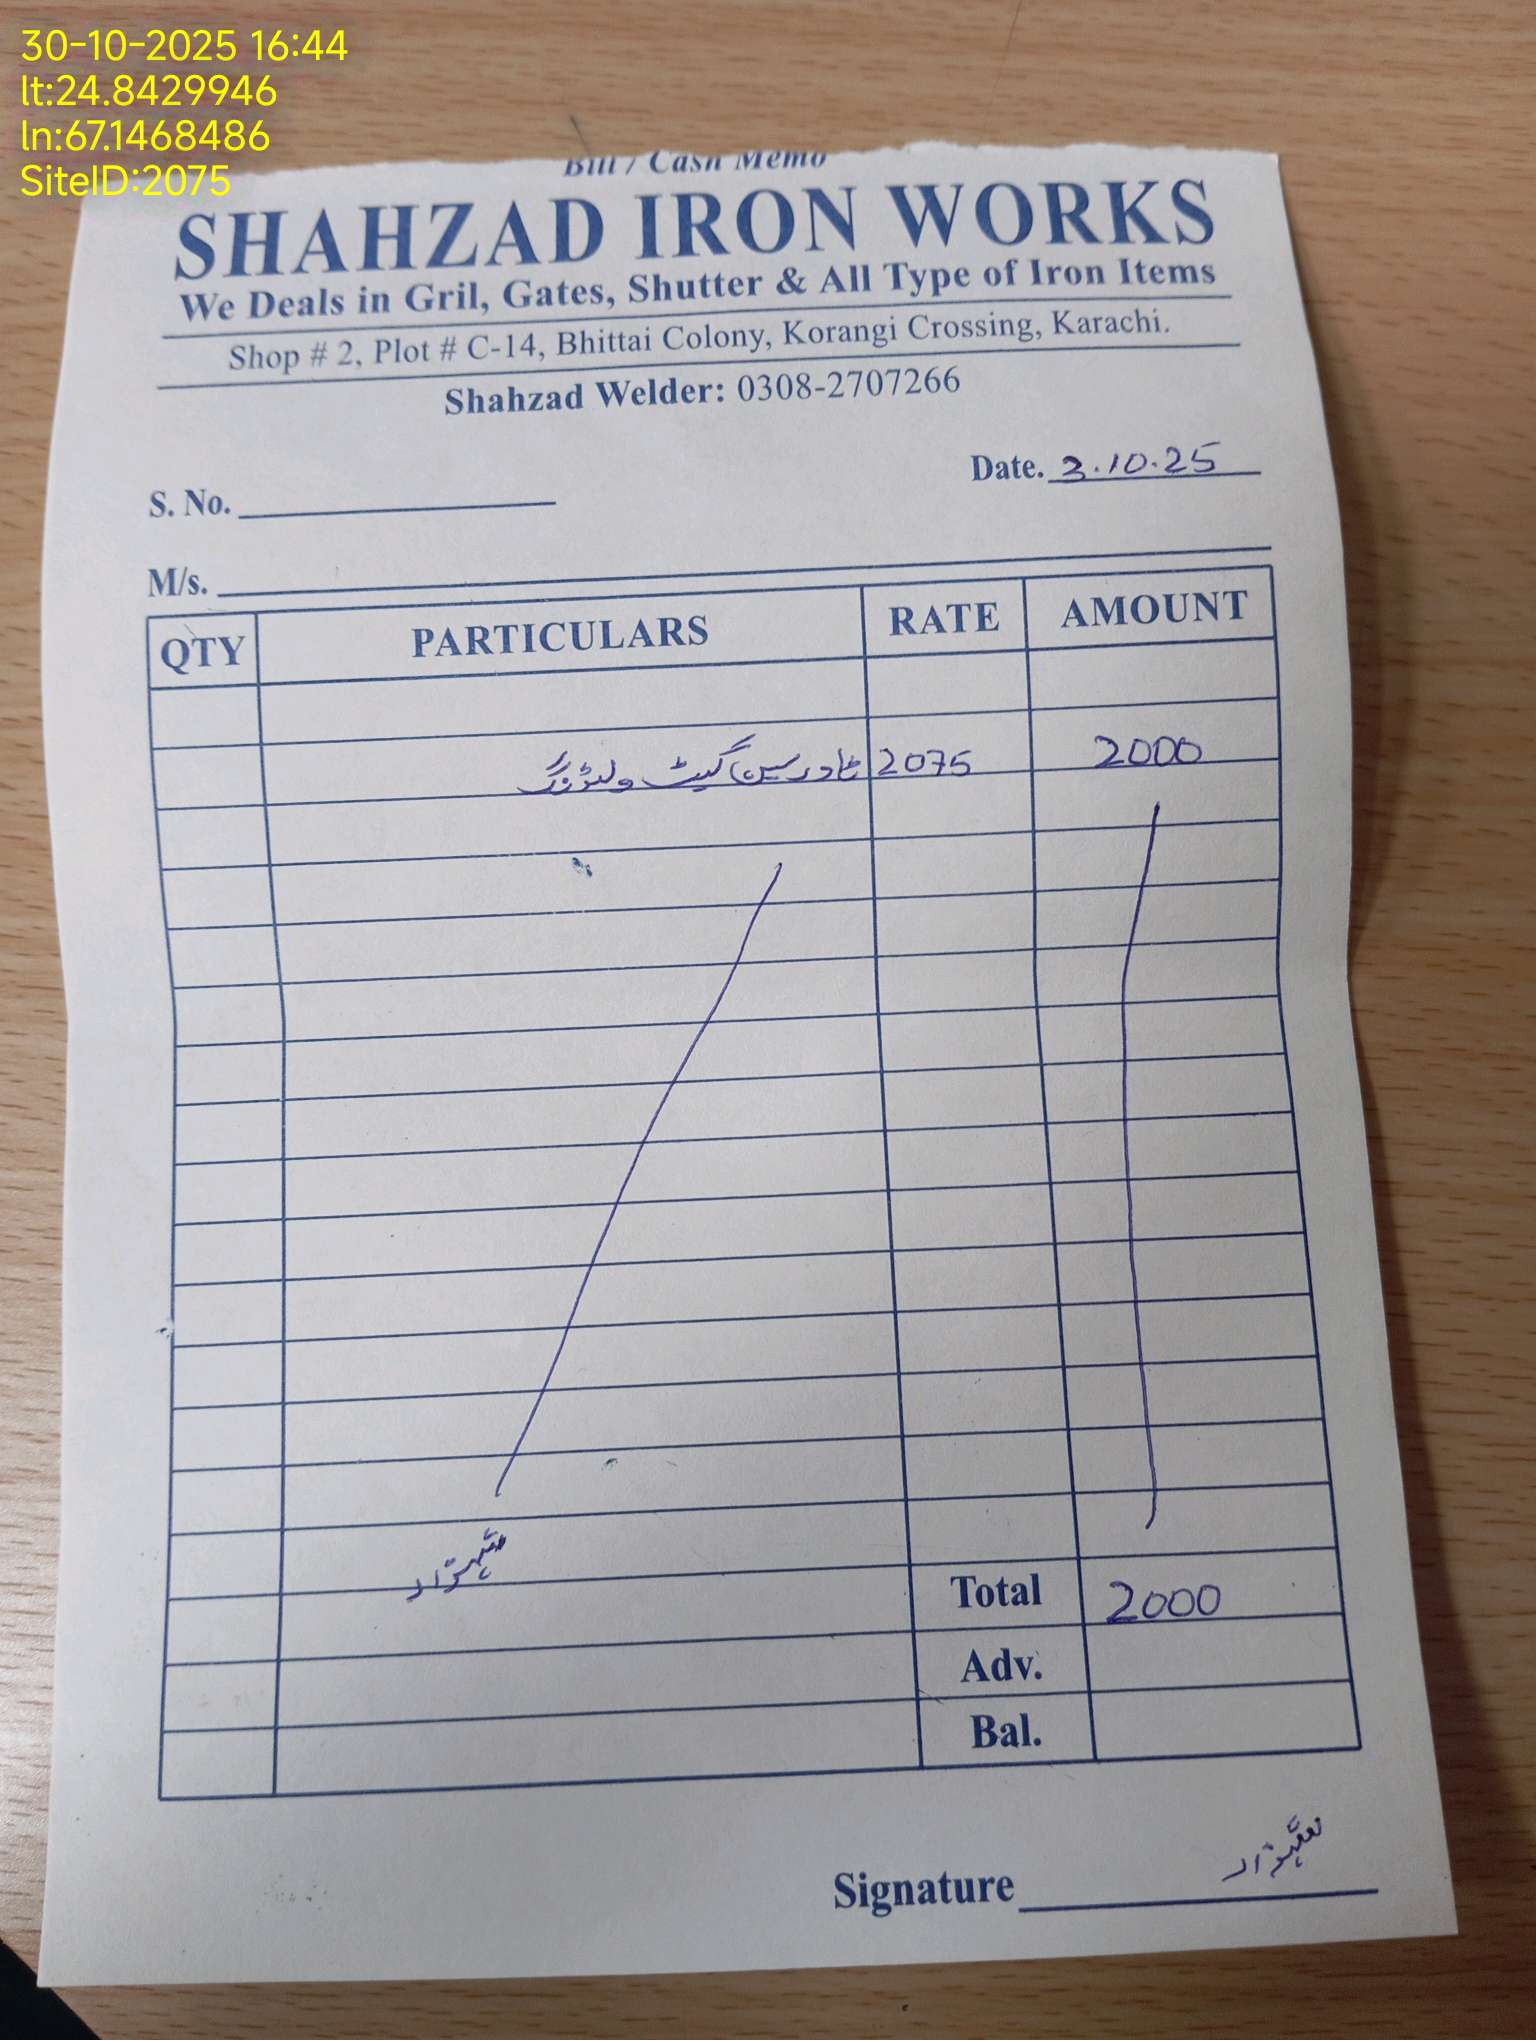 30-10-2025 16:44
lt:24.8429946
ln:67.1468486
SiteID:2075
Bill / Cash Memo
SHAHZAD IRON WORKS
We Deals in Gril, Gates, Shutter & All Type of Iron Items
Shop # 2, Plot # C-14, Bhittai Colony, Korangi Crossing, Karachi.
Shahzad Welder: 0308-2707266
Date. 3.10.25
S. No.
M/s.
QTY PARTICULARS RATE AMOUNT
ٹاور مین گیٹ ولڈنگ 2075 2000
شہزاد
Total 2000
Adv.
Bal.
Signature شہزاد